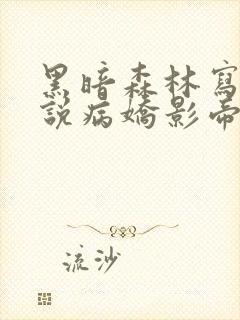 黑暗森林寫
說病嬌影帝
流沙